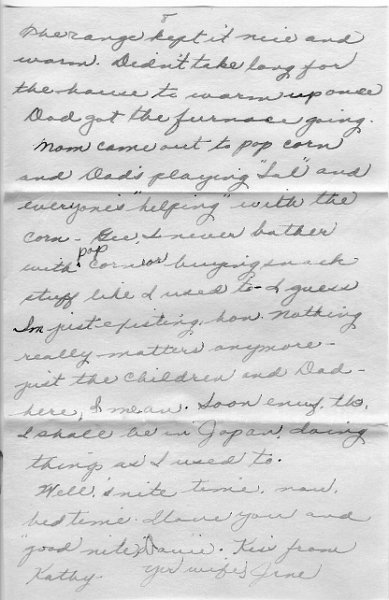 8
The range kept it nice and
warm. Didn't take long for
the house to warm up once
Dad got the furnace going.
Mom came out to pop corn
and Dad's playing "Sol" and
everyone's "helping" with the
corn - Gee, I never bather
with pop corn or buying snack
stuff like I used to - I guess
I'm just existing, hon. Nothing
really matters anymore -
just the children and Dad -
here, I mean. Soon enuf, tho,
I shall be in Japan, doing
things as I used to.
Well, 'snite time, now,
bedtime. I love you and
"good nite", Davie. Kiss from
Kathy. yer wife, Irne